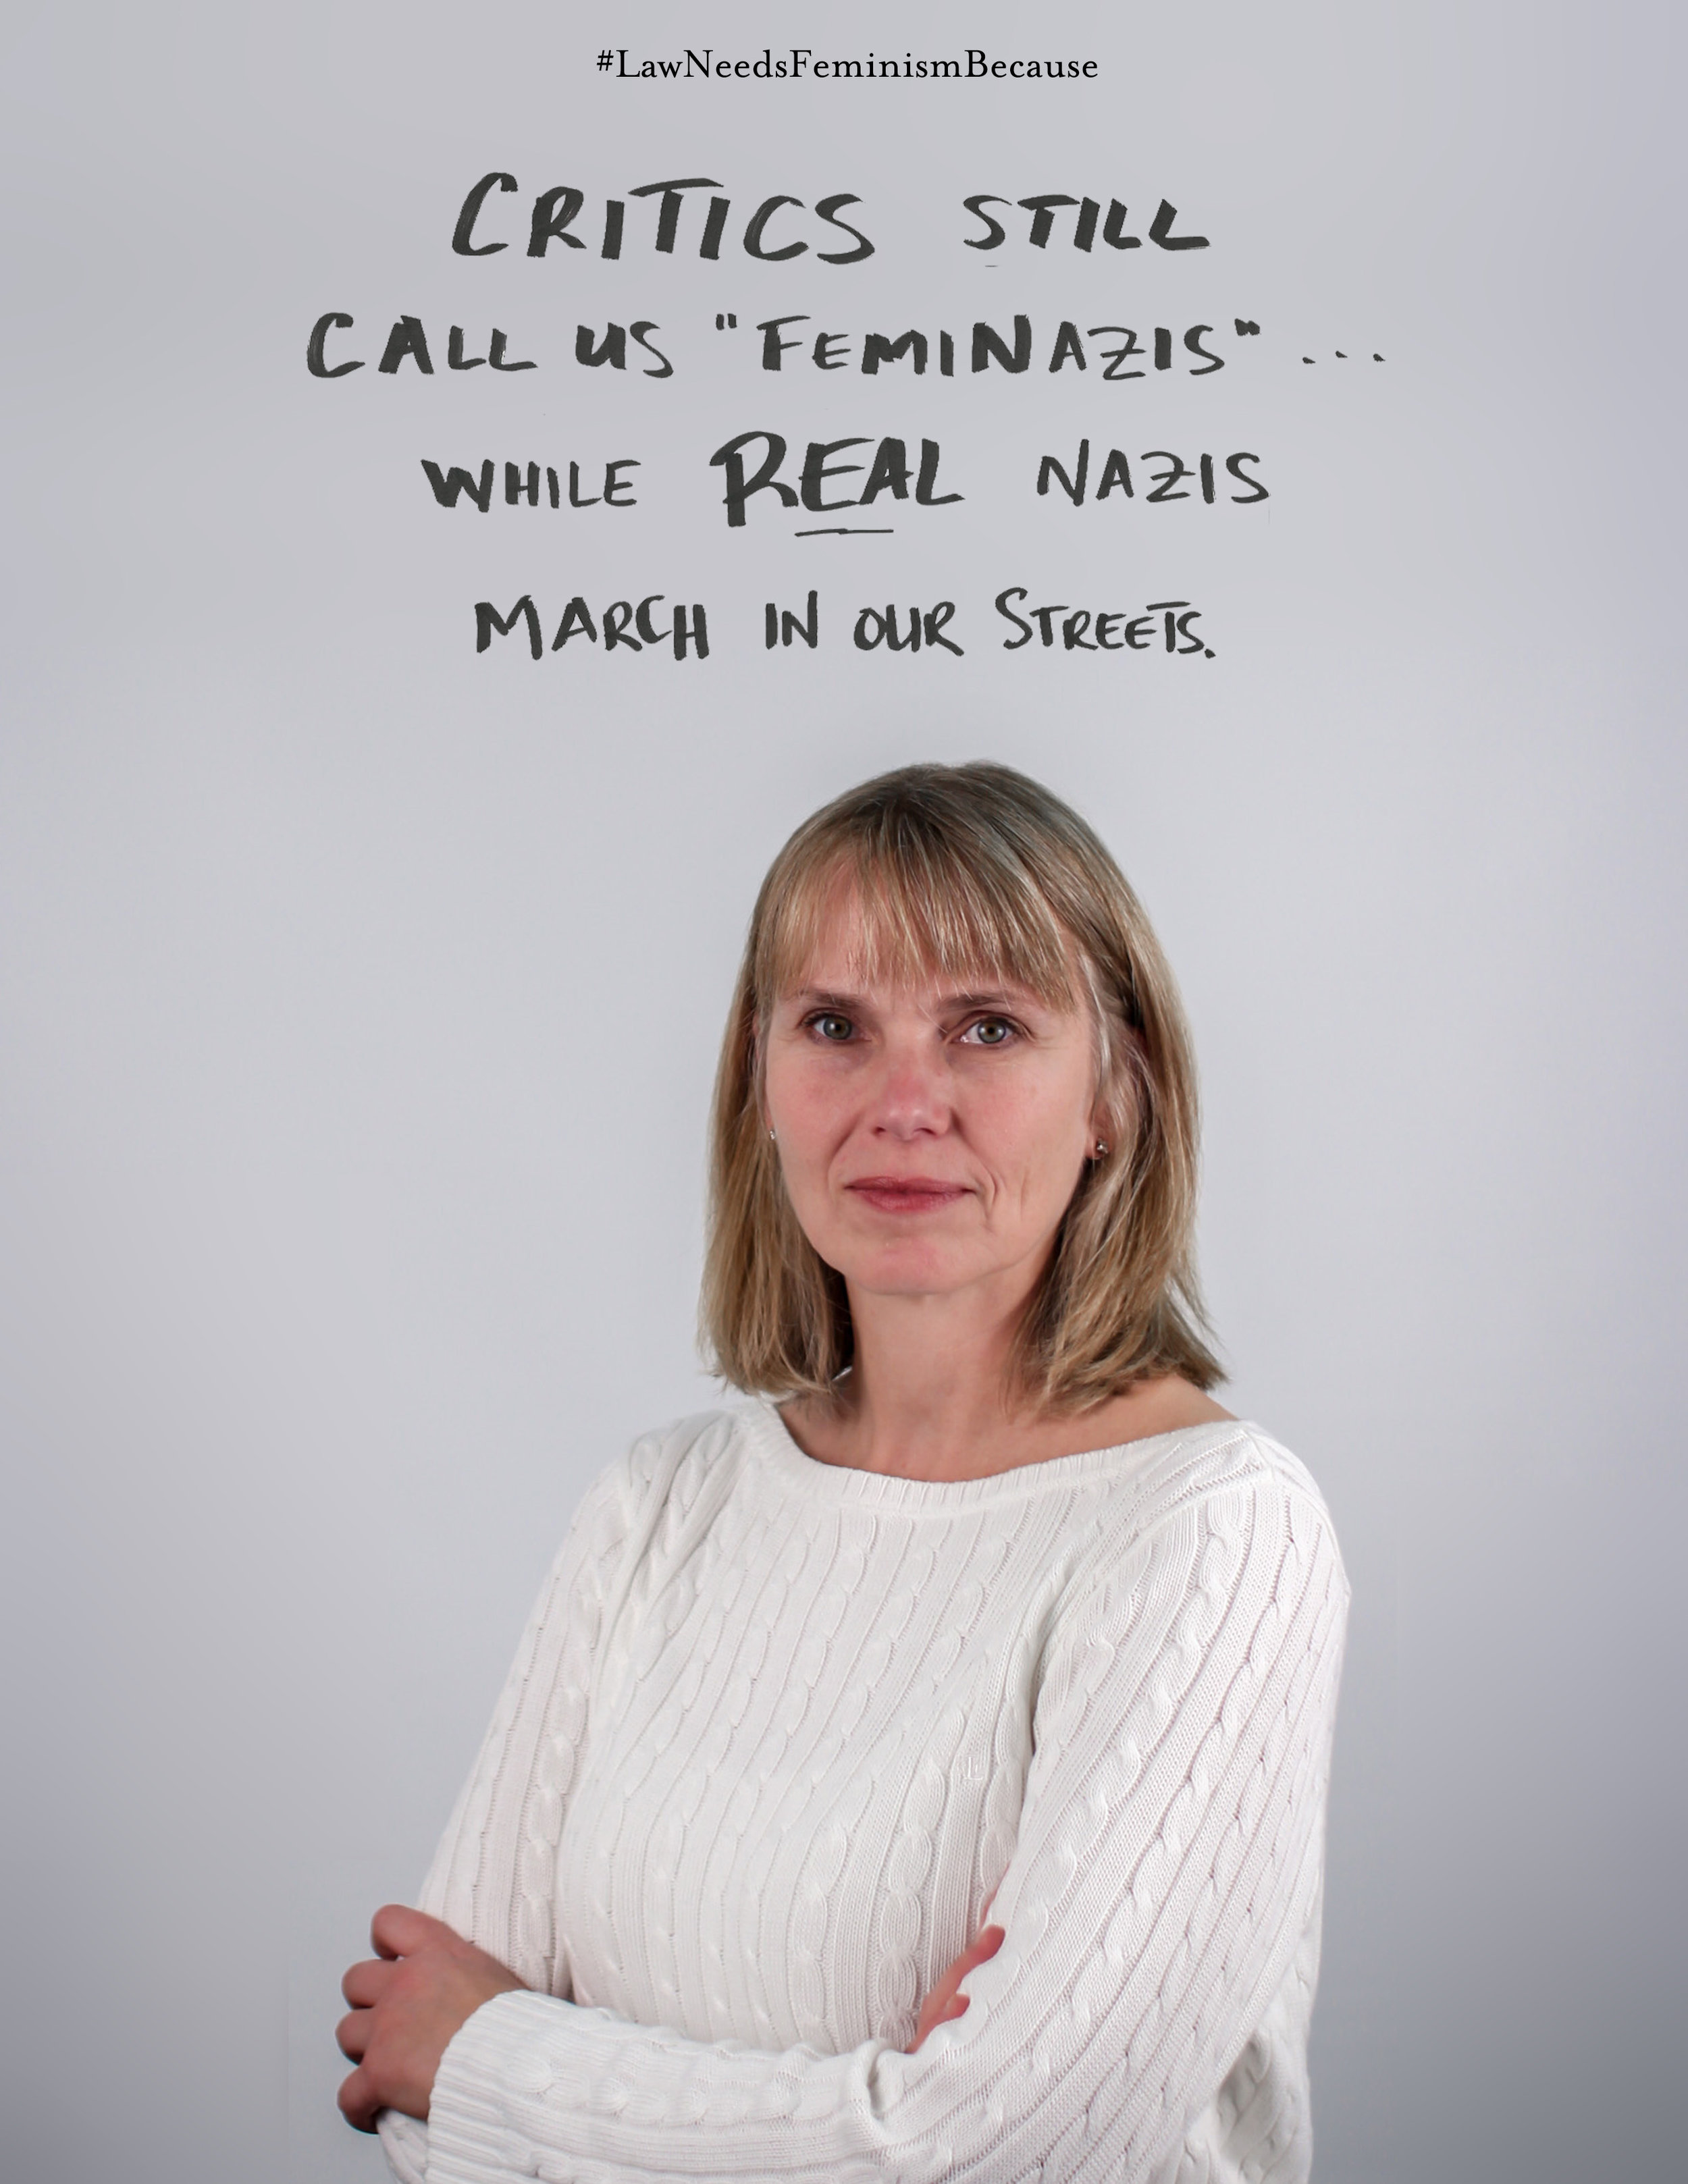 #LawNeedsFeminismBecause
CRITICS STILL
CALL US "FEMINAZIS"...
WHILE REAL NAZIS
MARCH IN OUR STREETS.